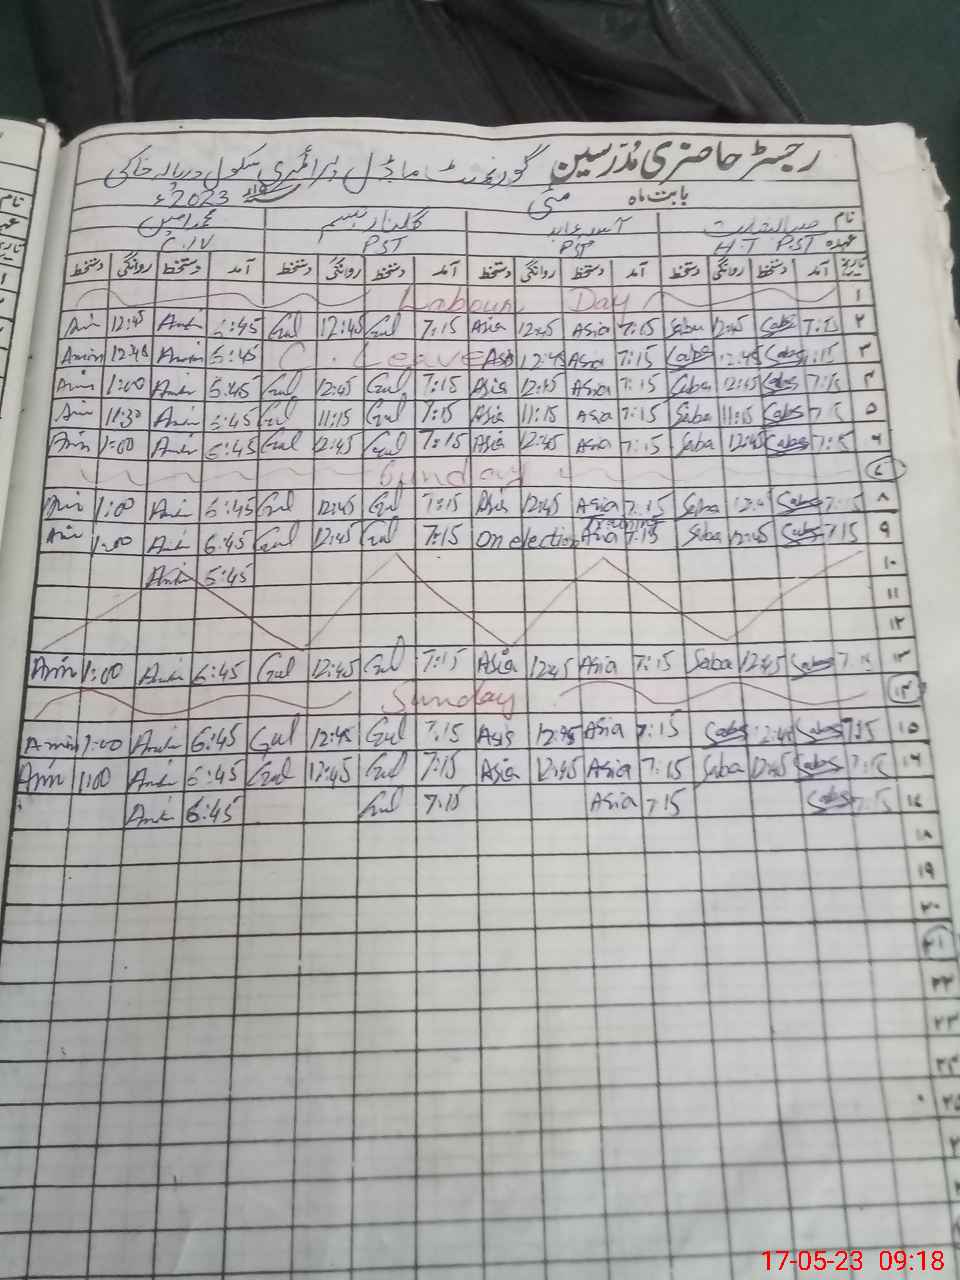 رجسٹر حاضری مدرسین گورنمنٹ ماڈل پرائمری سکول
بابت ماہ مئی 2023ء
نام
عہدہ H.T PST PST PST C.IV
تاریخ آمد دستخط روانگی دستخط آمد دستخط روانگی دستخط آمد دستخط روانگی دستخط آمد دستخط روانگی دستخط
۱ Labour Day
Amin 12:45 Amin 6:45 Gul 12:45 Gul 7:15 Asia 12:45 Asia 7:15 Saba 12:45 Saba 7:15 ۲
Amin 12:45 Amin 6:45 C. Leave Asia 12:45 Asia 7:15 Saba 12:45 Saba 7:15 ۳
Amin 1:00 Amin 6:45 Gul 12:45 Gul 7:15 Asia 12:45 Asia 7:15 Saba 12:45 Saba 7:15 ۴
Amin 11:30 Amin 6:45 Gul 11:15 Gul 7:15 Asia 11:15 Asia 7:15 Saba 11:15 Saba 7:15 ۵
Amin 1:00 Amin 6:45 Gul 12:45 Gul 7:15 Asia 12:45 Asia 7:15 Saba 12:45 Saba 7:15
Sunday
Amin 1:00 Amin 6:45 Gul 12:45 Gul 7:15 Asia 12:45 Asia 7:15 Saba 12:45 Saba 7:15 ۸
Amin 1:00 Amin 6:45 Gul 12:45 Gul 7:15 On election Training Asia 7:15 Saba 12:45 Saba 7:15 ۹
Amin 6:45 ۱۰
۱۱
۱۲
Amin 1:00 Amin 6:45 Gul 12:45 Gul 7:15 Asia 12:45 Asia 7:15 Saba 12:45 Saba 7:15 ۱۳
Sunday ۱۴
Amin 1:00 Amin 6:45 Gul 12:45 Gul 7:15 Asia 12:45 Asia 7:15 Saba 12:45 Saba 7:15 ۱۵
Amin 1:00 Amin 6:45 Gul 12:45 Gul 7:15 Asia 12:45 Asia 7:15 Saba 12:45 Saba 7:15 ۱۶
Amin 6:45 Gul 7:15 Asia 7:15 Saba 7:15 ۱۷
۱۸
۱۹
۲۰
۲۱
۲۲
۲۳
۲۴
۲۵
17-05-23 09:18